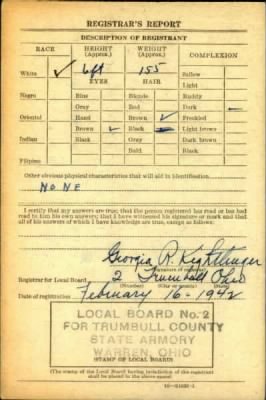 REGISTRAR'S REPORT
DESCRIPTION OF REGISTRANT
RACE
HEIGHT
(Approx.)
WEIGHT
(Approx.)
COMPLEXION
White ✓
6 ft
155
Sallow
EYES
HAIR
Light
Negro
Blue
Blonde
Ruddy
Gray
Red
Dark —
Oriental
Hazel
Brown ✓
Freckled
Brown ✓
Black
Light brown
Indian
Black
Gray
Dark brown
Bald
Black
Filipino
Other obvious physical characteristics that will aid in identification
NONE
I certify that my answers are true; that the person registered has read or has had
read to him his own answers; that I have witnessed his signature or mark and that
all of his answers of which I have knowledge are true, except as follows:
Georgia R. Kightlinger
(Signature of registrar)
Registrar for Local Board 2 Trumbull Ohio
(Number) (City or county) (State)
Date of registration February 16-1942
LOCAL BOARD No. 2
FOR TRUMBULL COUNTY
STATE ARMORY
WARREN, OHIO
(STAMP OF LOCAL BOARD)
(The stamp of the Local Board having jurisdiction of the registrant
shall be placed in the above space.)